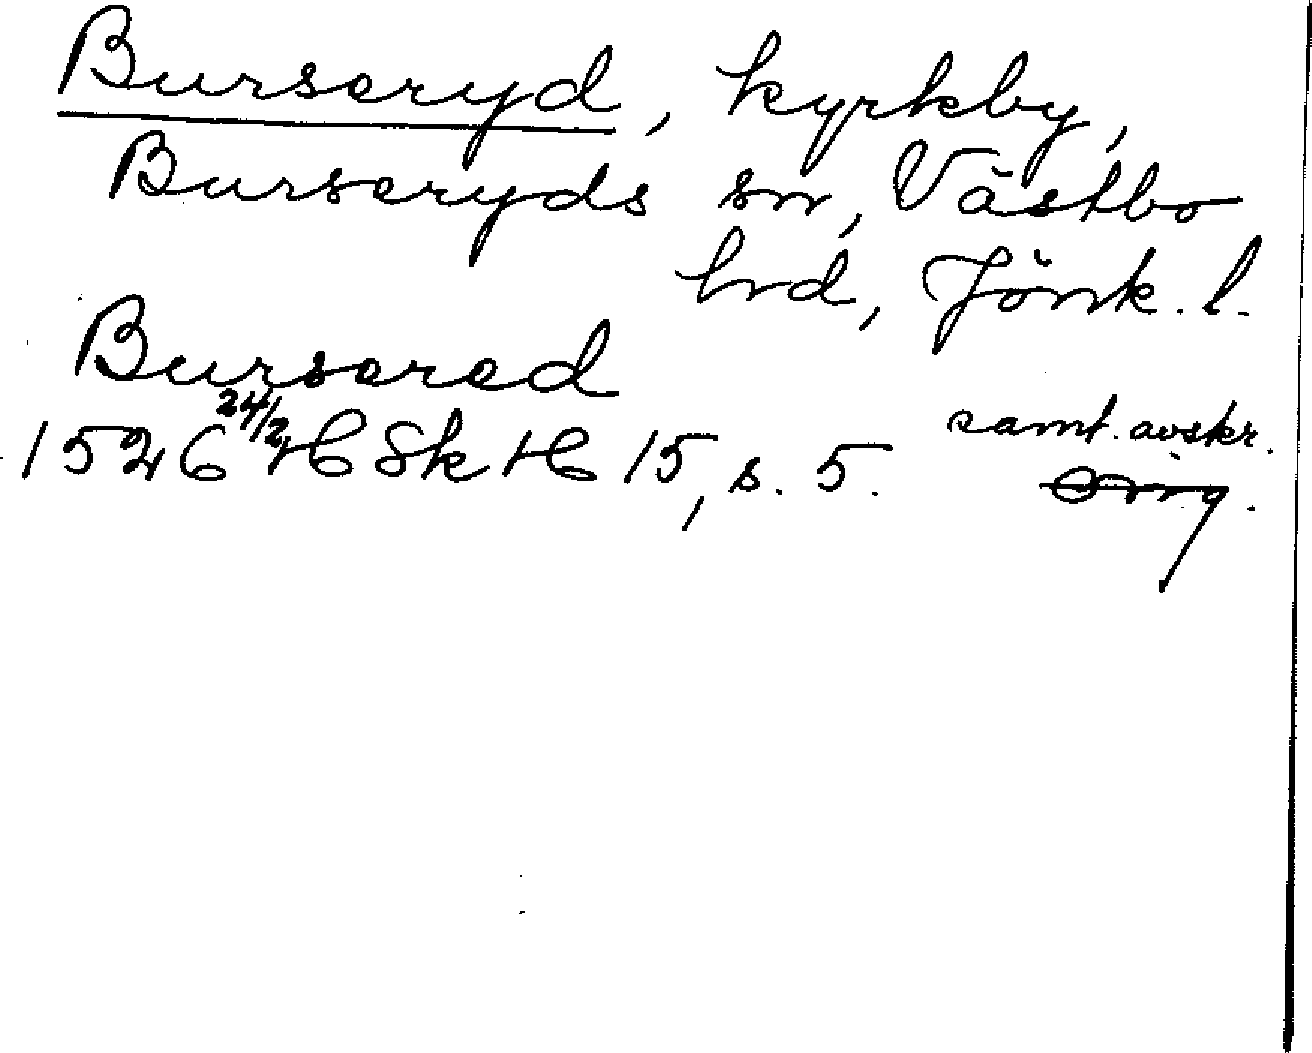 Burseryd, kyrkby,
Burseryds sn, Västbo
hrd, Jönk. l.
Bursered
samt. avskr.
1526 24/2 HSkH 15, s. 5. orig.